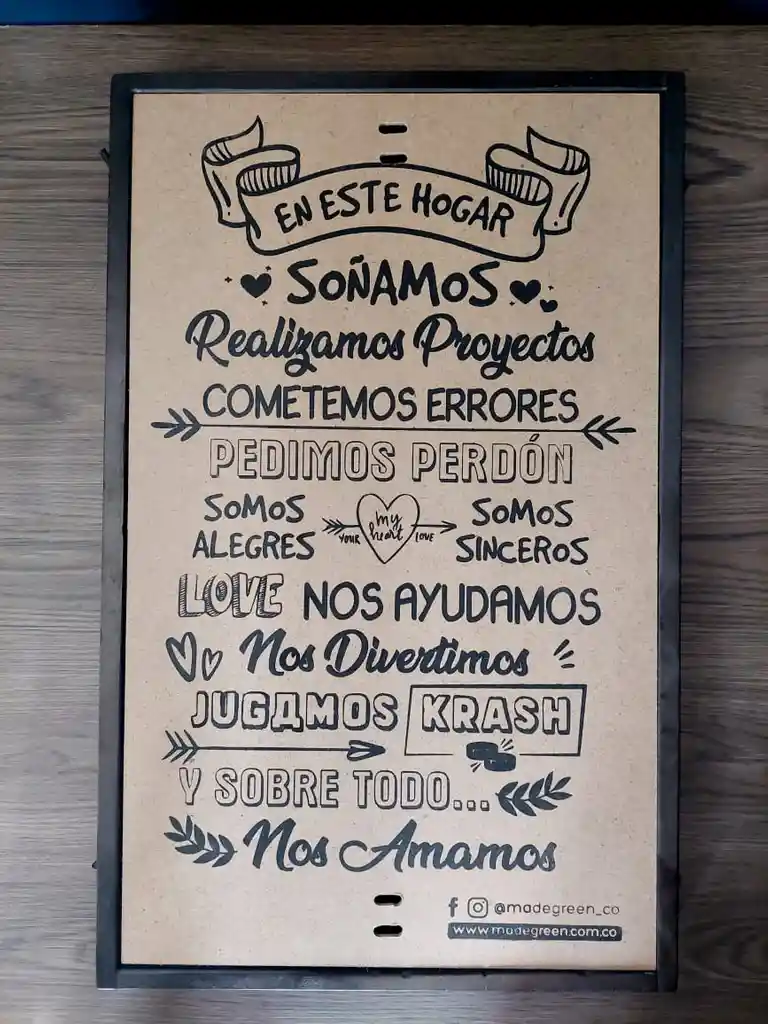 EN ESTE HOGAR
SOÑAMOS
Realizamos Proyectos
COMETEMOS ERRORES
PEDIMOS PERDÓN
SOMOS ALEGRES
YOUR my heart LOVE
SOMOS SINCEROS
LOVE NOS AYUDAMOS
Nos Divertimos
JUGAMOS KRASH
Y SOBRE TODO...
Nos Amamos
@madegreen_co
www.madegreen.com.co